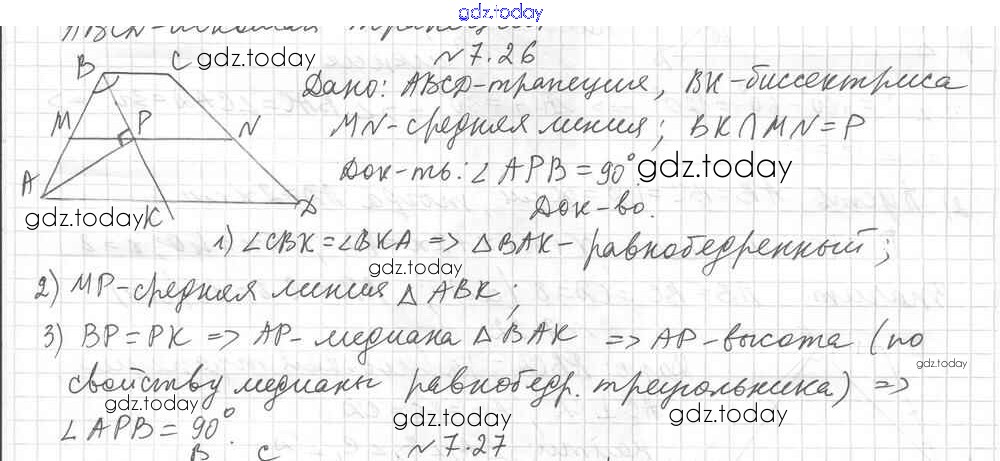 gdz.today
ABCD-искомая трапеция.
№7.26
B C gdz.today
Дано: ABCD-трапеция, BK-биссектриса
M P N
MN-средняя линия; BK∩MN=P
Док-ть: ∠APB=90°. gdz.today
A D
gdz.today K
Док-во.
1) ∠CBK=∠BKA => △BAK-равнобедренный;
gdz.today
2) MP-средняя линия △ABK;
3) BP=PK => AP-медиана △BAK => AP-высота (по
gdz.today
свойству медианы равнобедр. треугольника) =>
gdz.today gdz.today gdz.today
∠APB=90°.
B C №7.27